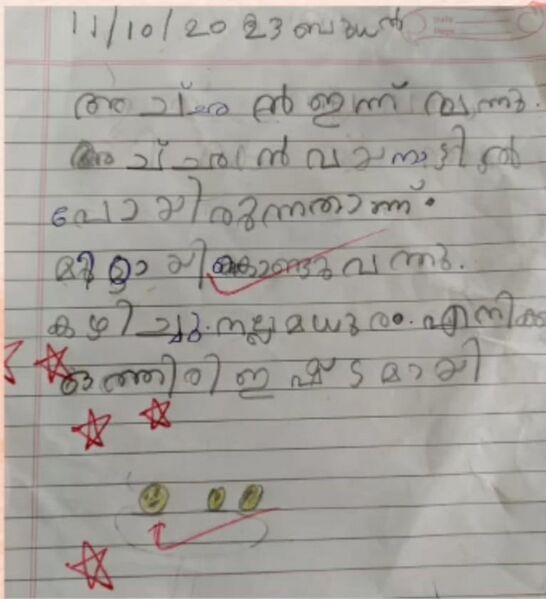 11/10/2023 ബുധൻ
അച്ഛൻ ഇന്ന് വന്നു.
അച്ഛൻ വയനാട്ടിൽ
പോയിരുന്നതാണ്.
മിഠായി കൊണ്ടുവന്നു.
കഴിച്ചു. നല്ല മധുരം. എനിക്ക
ഒത്തിരി ഇഷ്ടമായി